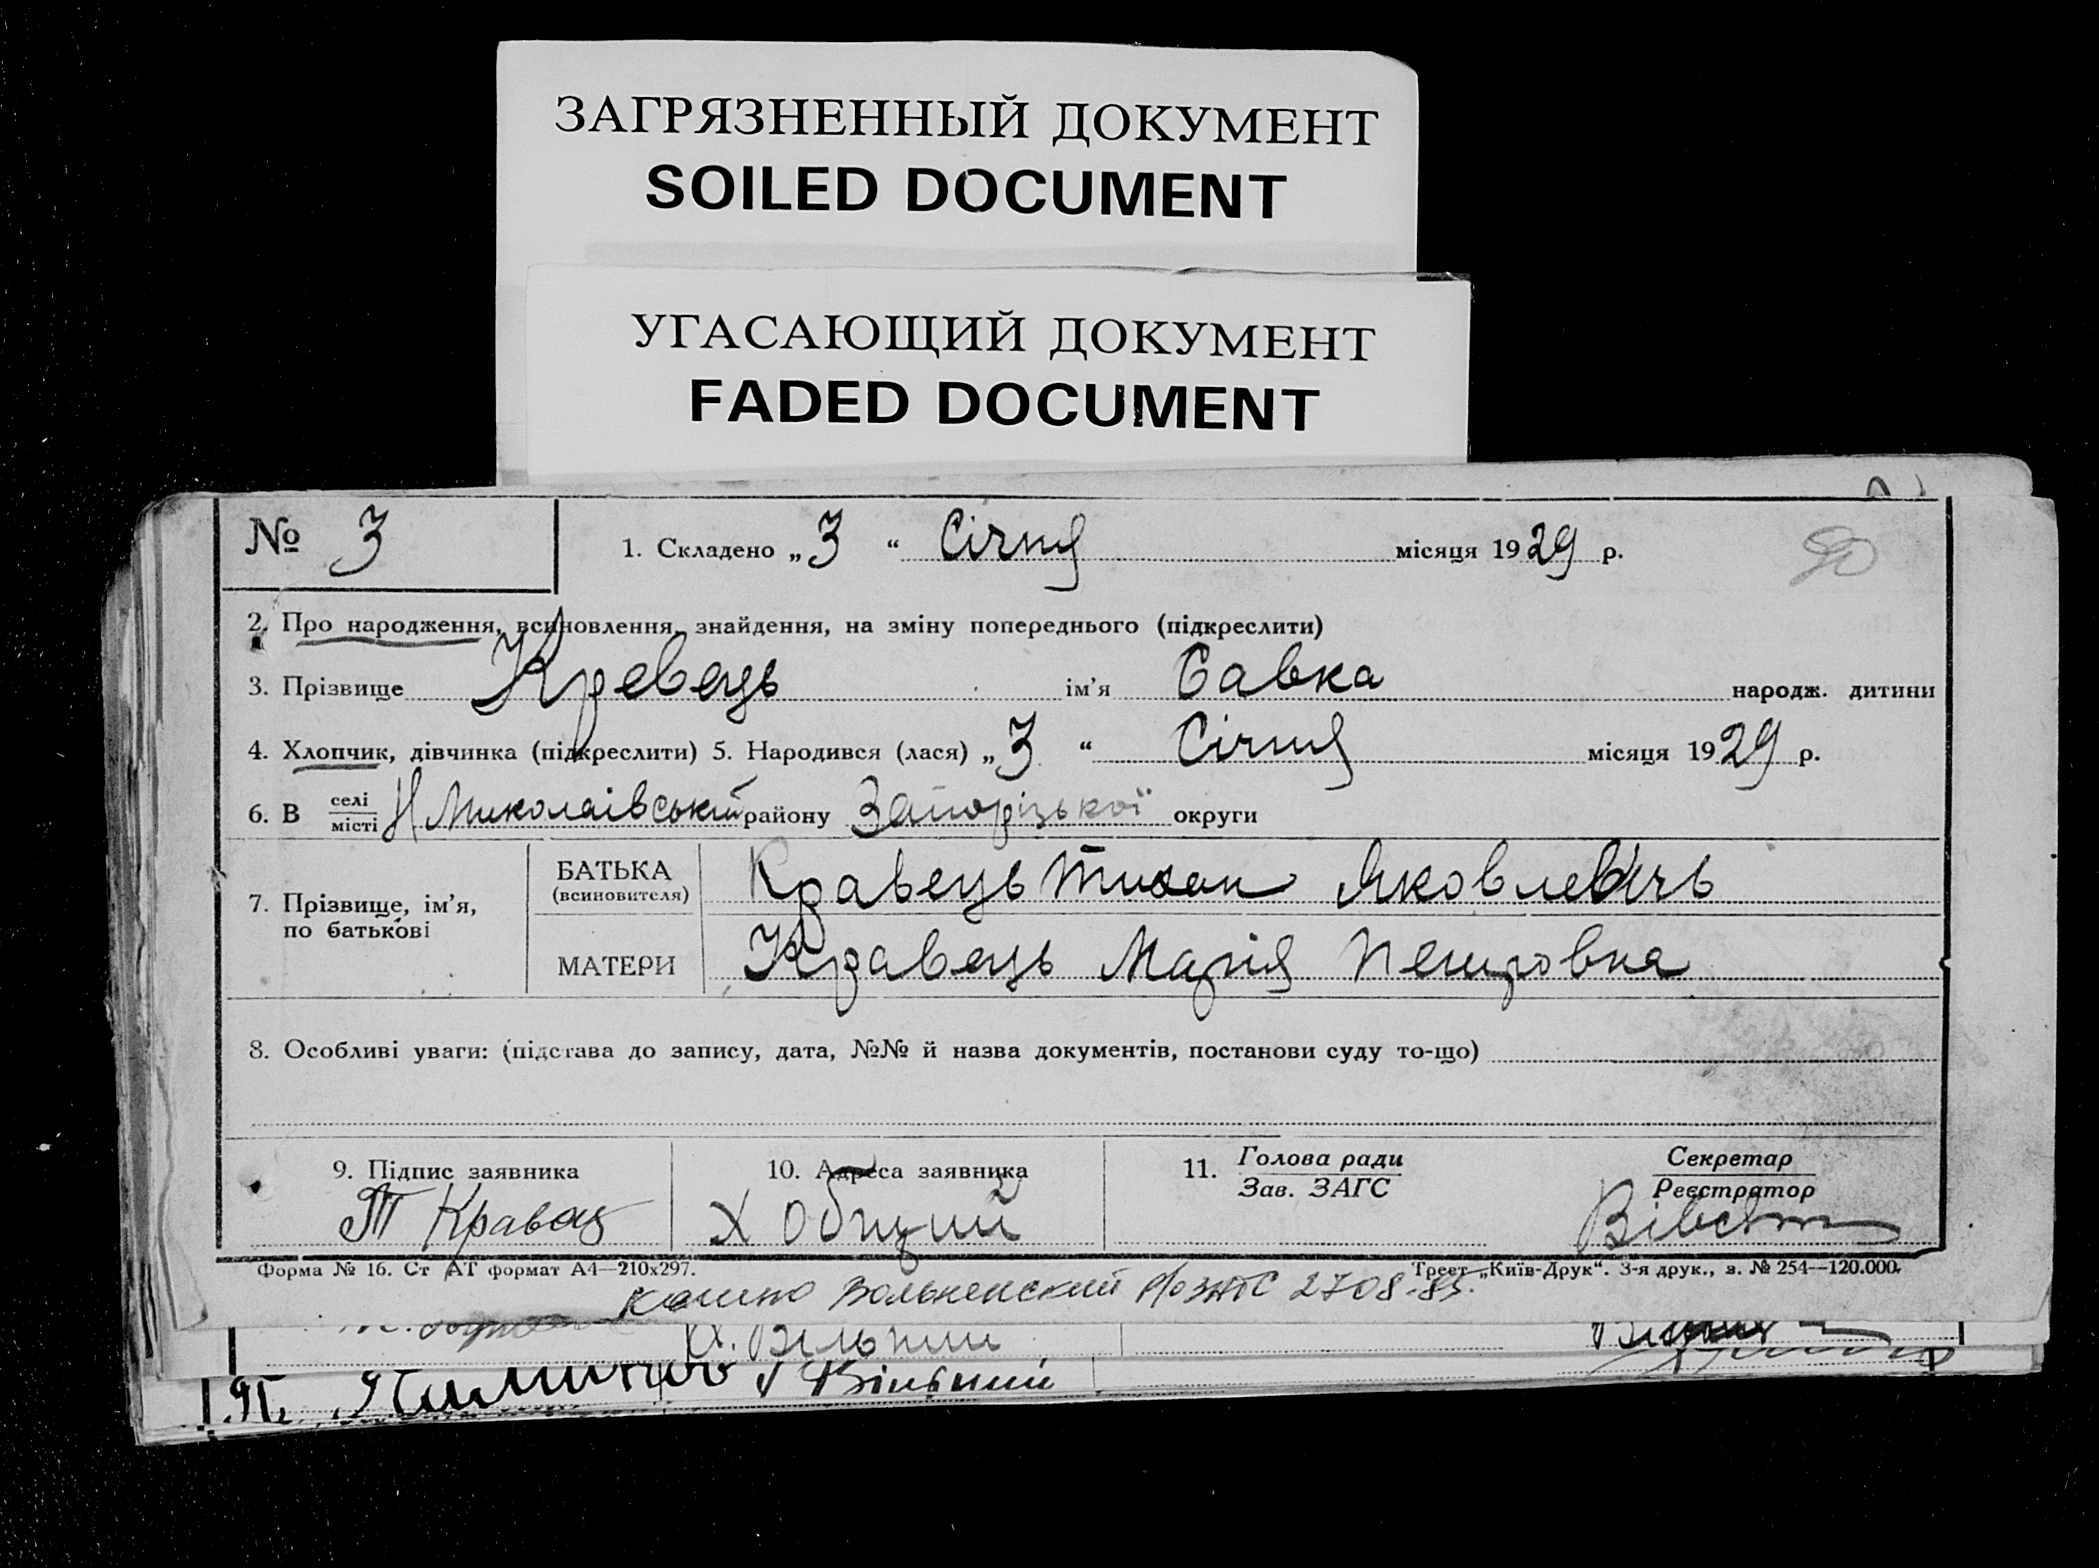 ЗАГРЯЗНЕННЫЙ ДОКУМЕНТ
SOILED DOCUMENT
УГАСАЮЩИЙ ДОКУМЕНТ
FADED DOCUMENT
№ 3
1. Складено „3“ Січня місяця 1929 р.
2. Про народження, всиновлення, знайдення, на зміну попереднього (підкреслити)
3. Прізвище Кревець ім'я Савка народж. дитини
4. Хлопчик, дівчинка (підкреслити) 5. Народився (лася) „3“ Січня місяця 1929 р.
6. В селі місті Н Миколаівський району Запорізької округи
7. Прізвище, ім'я, по батькові
БАТЬКА (всиновителя) Кравець Тихон Яковлевічь
МАТЕРИ Кравець Марія Петровна
8. Особливі уваги: (підстава до запису, дата, №№ й назва документів, постанови суду то-що)
9. Підпис заявника
Т Кравец
10. Адреса заявника
Х Общий
11. Голова ради
Зав. ЗАГС
Секретар
Реєстратор
Форма № 16. Ст АТ формат А4—210х297.
Трест „Київ-Друк“. 3-я друк., з. № 254—120.000.
Вольненский 2708-85.
Х. Вільний
Вільний